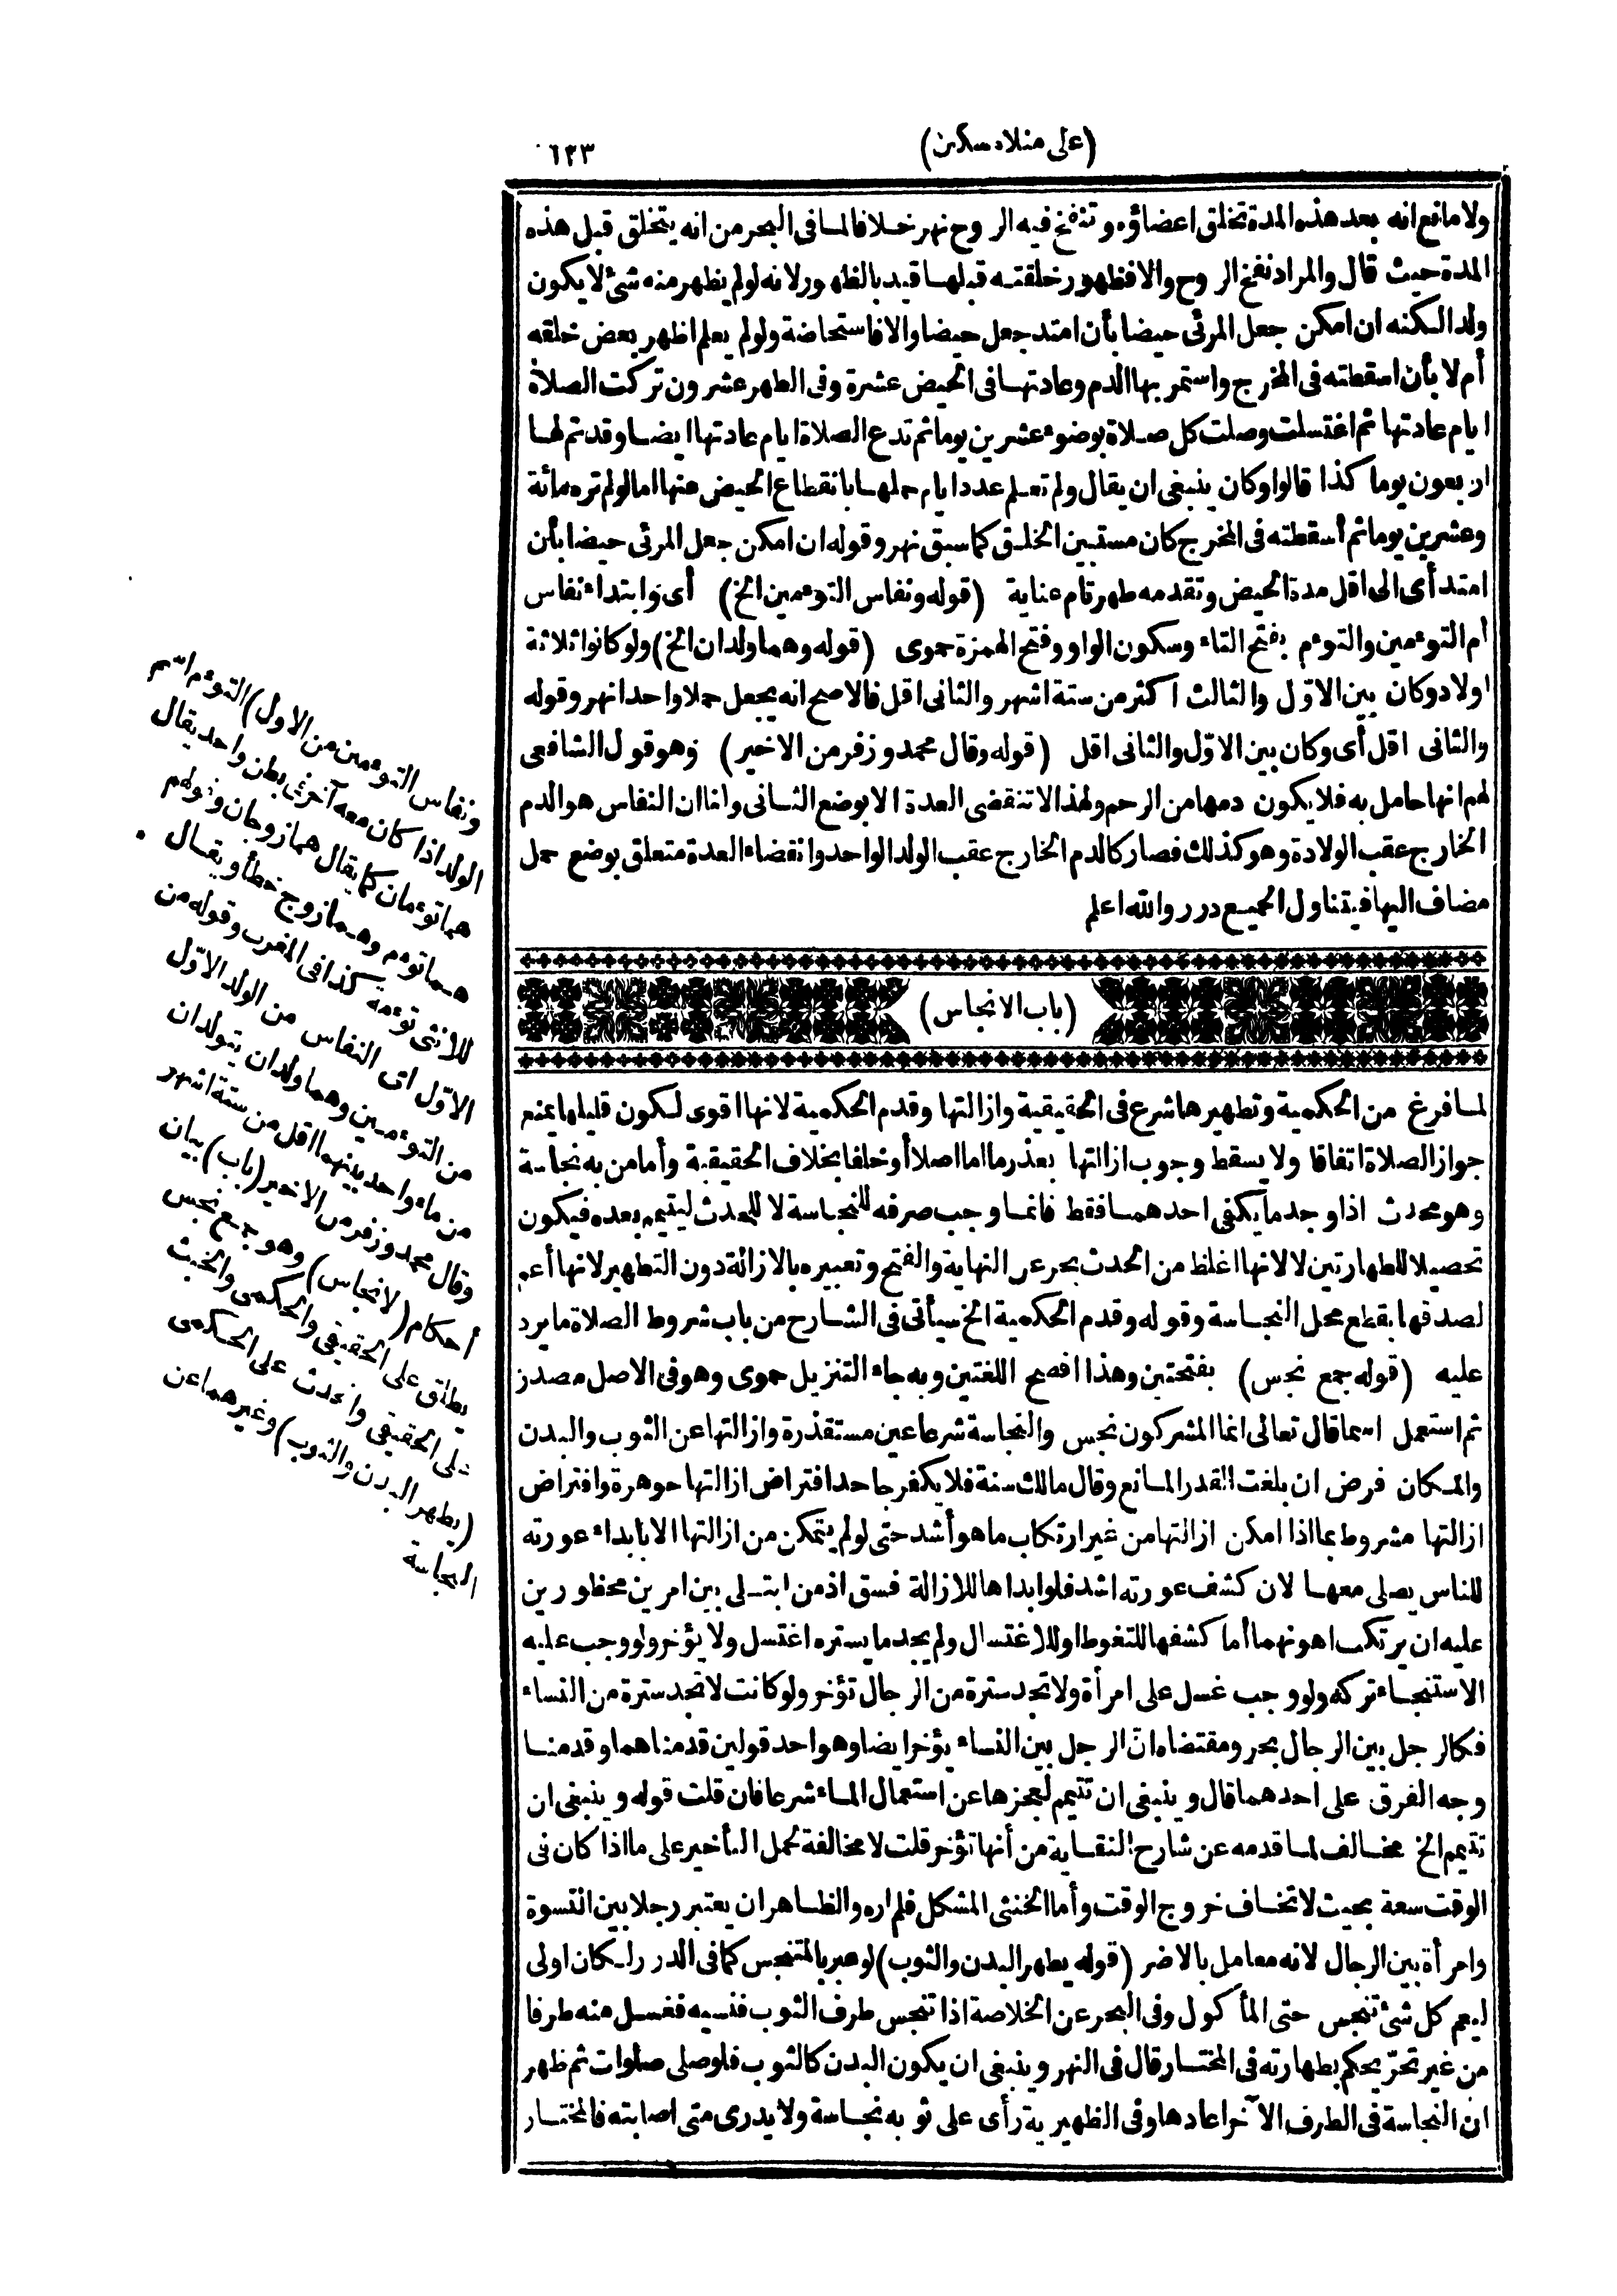 (على منلا مسكين)
١٢٣
ولا مانع انه بعد هذه المدة تخلق اعضاؤه وتنفخ فيه الروح نهر خلافا لما فى البحر من انه يتخلق قبل هذه
المدة حيث قال والمراد نفخ الروح والا فظهور خلقته قبلها قيد بالظهور لانه لو لم يظهر منه شئ لا يكون
ولدا لكنه ان امكن جعل المرئى حيضا بأن امتد جعل حيضا والا فاستحاضة ولو لم يعلم اظهر بعض خلقه
أم لا بأن اسقطته فى المخرج واستمر بها الدم وعادتها فى الحيض عشرة وفى الطهر عشرون تركت الصلاة
ايام عادتها ثم اغتسلت وصلت كل صلاة بوضوء عشرين يوما ثم تدع الصلاة ايام عادتها ايضا وقد تم لها
اربعون يوما كذا قالوا وكان ينبغى ان يقال ولم تعلم عدد ايام حملها بانقطاع الحيض عنها اما لو لم تره مائة
وعشرين يوما ثم أسقطته فى المخرج كان مستبين الخلق كما سبق نهر وقوله ان امكن جعل المرئى حيضا بأن
امتد أى الى اقل مدة الحيض وتقدمه طهر تام عناية (قوله ونفاس التوءمين الخ) أى وابتداء نفاس
أم التوءمين والتوءم بفتح التاء وسكون الواو وفتح الهمزة حموى (قوله وهما ولدان الخ) ولو كانوا ثلاثة
اولاد وكان بين الاوّل والثالث اكثر من ستة اشهر والثانى اقل فالاصح انه يجعل حملا واحدا نهر وقوله
والثانى اقل أى وكان بين الاوّل والثانى اقل (قوله وقال محمد وزفر من الاخير) وهو قول الشافعى
لهم انها حامل به فلا يكون دمها من الرحم ولهذا لا تنقضى العدة الا بوضع الثانى ولنا ان النفاس هو الدم
الخارج عقب الولادة وهو كذلك فصار كالدم الخارج عقب الولد الواحد وانقضاء العدة متعلق بوضع حمل
مضاف اليها فيتناول الجميع درر والله اعلم
(باب الانجاس)
لما فرغ من الحكمية وتطهيرها شرع فى الحقيقية وازالتها وقدم الحكمية لانها اقوى لكون قليلها يمنع
جواز الصلاة اتفاقا ولا يسقط وجوب ازالتها بعذر ما اما اصلا أو خلفا بخلاف الحقيقية وأما من به نجاسة
وهو محدث اذا وجد ما يكفى احدهما فقط فانما وجب صرفه للنجاسة لا للحدث ليتيمم بعده فيكون
تحصيلا للطهارتين لا لانها اغلظ من الحدث بحر عن النهاية والفتح وتعبيره بالازالة دون التطهير لانها أعم
لصدقها بقطع محل النجاسة وقوله وقدم الحكمية الخ سيأتى فى الشارح من باب شروط الصلاة ما يرد
عليه (قوله جمع نجس) بفتحتين وهذا افصح اللغتين وبه جاء التنزيل حموى وهو فى الاصل مصدر
ثم استعمل اسما قال تعالى انما المشركون نجس والنجاسة شرعا عين مستقذرة وازالتها عن الثوب والبدن
والمكان فرض ان بلغت القدر المانع وقال مالك سنة فلا يكفر جاحد افتراض ازالتها جوهرة وافتراض
ازالتها مشروط بما اذا امكن ازالتها من غير ارتكاب ما هو أشد حتى لو لم يتمكن من ازالتها الا بابداء عورته
للناس يصلى معها لان كشف عورته اشد فلو ابداها للازالة فسق اذ من ابتلى بين امرين محظورين
عليه ان يرتكب اهونهما أما كشفها للتغوط او للاغتسال ولم يجد ما يستره اغتسل ولا يؤخر ولو وجب عليه
الاستنجاء تركه ولو وجب غسل على امرأة ولا تجد سترة من الرجال تؤخر ولو كانت لا تجد سترة من النساء
فكالرجل بين الرجال بحر ومقتضاه انّ الرجل بين النساء يؤخر ايضا وهو احد قولين قدمناهما وقدمنا
وجه الفرق على احدهما قال وينبغى ان تتيمم لعجزها عن استعمال الماء شرعا فان قلت قوله وينبغى ان
تتيمم الخ مخالف لما قدمه عن شارح النقاية من أنها تؤخر قلت لا مخالفة لحمل التأخير على ما اذا كان فى
الوقت سعة بحيث لا تخاف خروج الوقت وأما الخنثى المشكل فلم اره والظاهر ان يعتبر رجلا بين النسوة
وامرأة بين الرجال لانه معامل بالاضر (قوله يطهر البدن والثوب) لو عبر بالمتنجس كما فى الدرر لكان اولى
ليعم كل شئ تنجس حتى المأكول وفى البحر عن الخلاصة اذا تنجس طرف الثوب فنسيه فغسل منه طرفا
من غير تحرّ يحكم بطهارته فى المختار قال فى النهر وينبغى ان يكون البدن كالثوب فلو صلى صلوات ثم ظهر
ان النجاسة فى الطرف الآخر اعادها وفى الظهيرية رأى على ثوبه نجاسة ولا يدرى متى اصابته فالمختار
ونفاس التوءمين من الاول) التوءم اسم
الولد اذا كان معه آخر فى بطن واحد يقال
هما توءمان كما يقال هما زوجان وقولهم
هما توءم وهما زوج خطأ ويقال
للانثى توءمة كذا فى المغرب وقوله من
الاوّل اى النفاس من الولد الاوّل
من التوءمين وهما ولدان يتولدان
من ماء واحد بينهما اقل من ستة اشهر
وقال محمد وزفر من الاخير (باب) بيان
أحكام (الانجاس) وهو جمع نجس
يطلق على الحقيقى والحكمى والخبث
على الحقيقى والحدث على الحكمى
(يطهر البدن والثوب) وغيرهما عن
النجاسة